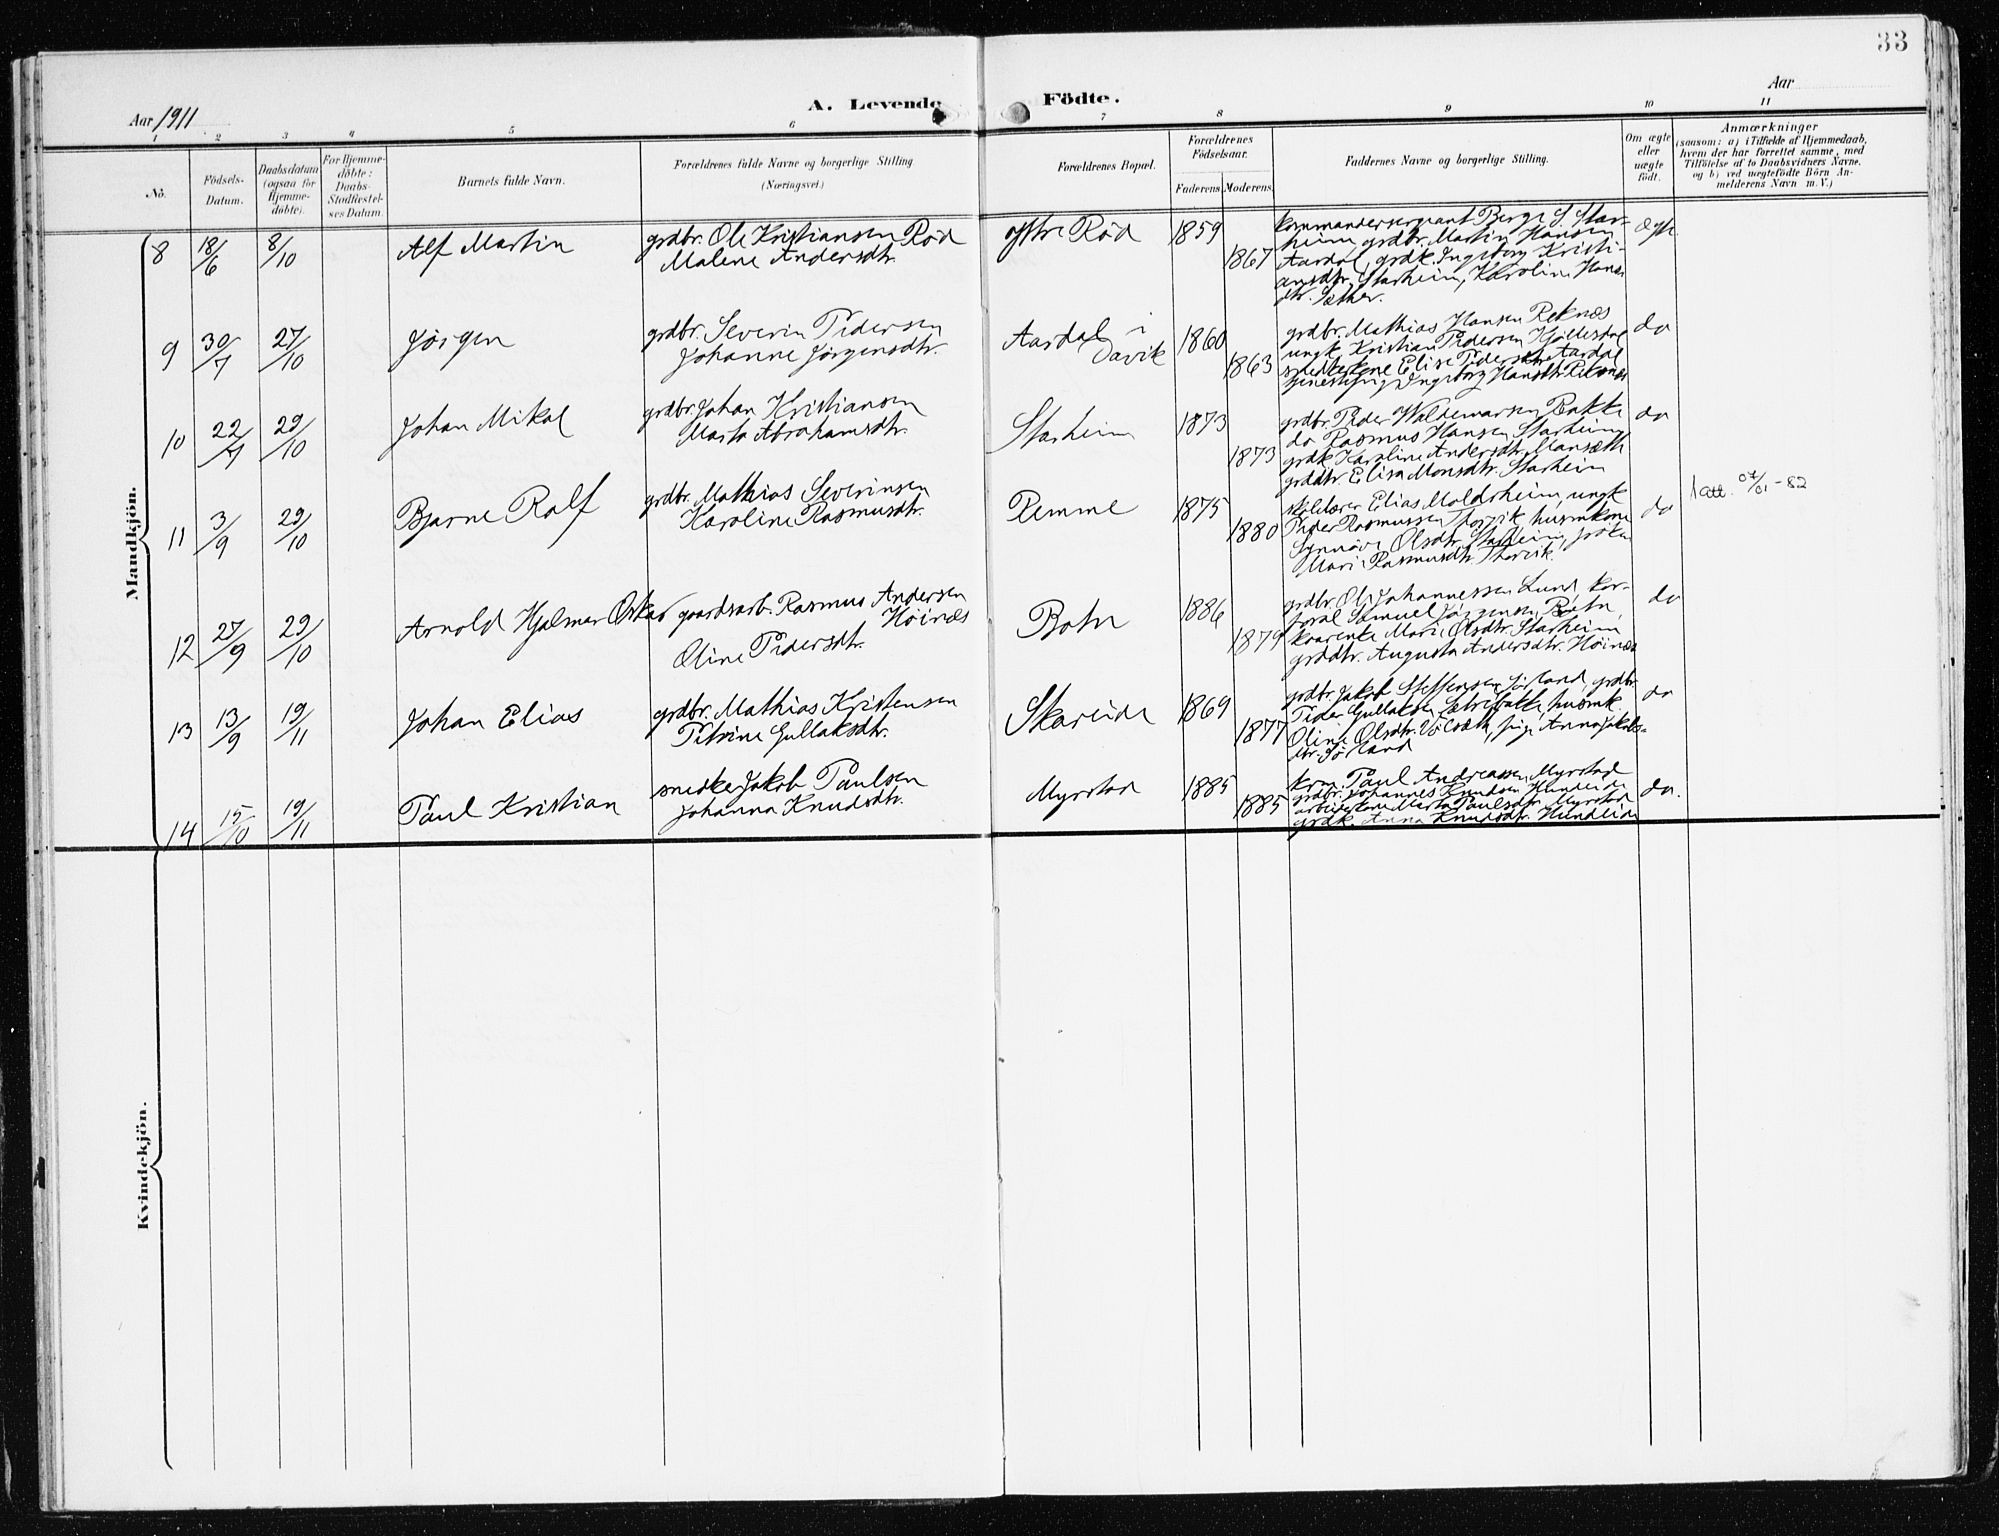 33
Aar 1911
A. Levende Födte.
Aar
1 2 3 4 5 6 7 8 9 10 11
No.
Födsels-
Datum.
Daabsdatum
(ogsaa for
Hjemme-
döbte).
For Hjemme-
döbte:
Daabs-
Stadfæstel-
ses Datum.
Barnets fulde Navn.
Forældrenes fulde Navne og borgerlige Stilling
(Næringsvei.)
Forældrenes Bopæl.
Forældrenes
Födselsaar.
Faderens. Moderens.
Faddernes Navne og borgerlige Stilling.
Om ægte
eller
uægte
födt.
Anmærkninger
(saasom: a) i Tilfælde af Hjemmedaab,
hvem der har forrettet samme, med
Tilföielse af to Daabsvidners Navne.
og b) ved uægtefödte Börn An-
melderens Navn m. V.)
Mandkjön.
8 18/6 8/10 Alf Martin
grdbr. Ole Kristiansen Röd
Malene Andersdtr.
Ytre Röd 1859 1867
kommandersergeant Berge S. Star-
heim, grdbr. Martin Hansen
Aardal, grdk. Ingeborg Kristi-
ansdtr. Starheim, Karoline Hans
dtr. Sæther.
Ægte
9 30/7 27/10 Jørgen
grdbr. Severin Pedersen
Johanne Jørgensdtr.
Aardal i
Davik
1860 1863
grdbr. Mathias Hansen Reknæs
ungk. Kristian Pedersen Hjellestad
Elise Pedersdtr. Aardal
Ingeborg Hansdtr. Reknæs
do
10 22/7 29/10 Johan Mikal
grdbr. Johan Kristiansen
Marta Abrahamsdtr.
Starheim 1873 1873
grdbr. Peder Waldemarsen Bakke
do Rasmus Hansen Starheim
grdk. Karoline Andersdtr. Mansæth
grddtr. Elisa Monsdtr. Starheim
do
11 3/9 29/10 Bjarne Ralf
grdbr. Mathias Severinsen
Karoline Rasmusdtr.
Remme 1875 1880
Elias Maldsheim, ungk.
Peder Rasmussen Thorvik, husmkone
Synnöve Olsdtr. Starheim, pike
Marie Rasmusdtr. Thorvik.
do
1 att. 07/01-82
12 27/9 29/10 Arnold Hjalmar Oskar
gaardsarb. Rasmus Andersen
Höinæs
Oline Pedersdtr.
Botn 1886 1879
grdbr. Ole Johannessen Lund, kor-
poral Samuel Jørgensen Botn,
Marie Olsdtr. Starheim
grddtr. Augusta Andersdtr. Höinæs
do
13 13/9 19/11 Johan Elias
grdbr. Mathias Kristensen
Petrine Gullaksdtr.
Skareide 1869 1877
grdbr. Jakob Steffensen Sörland, grdbr.
Peder Gullaksen husmk.
Oline Olsdtr. pige Anna Jakobs-
dtr. Sörland
do
14 15/10 19/11 Paul Kristian
snedker Jakob Paulsen
Johanna Knudsdtr.
Myrstad 1885 1885
Paul Andreassen Myrstad
grdbr. Johannes Knudsen Hundeide
Marta Paulsdtr. Myrstad
grdk. Anna Knudsdtr. Hundeide
do.
Kvindekjön.